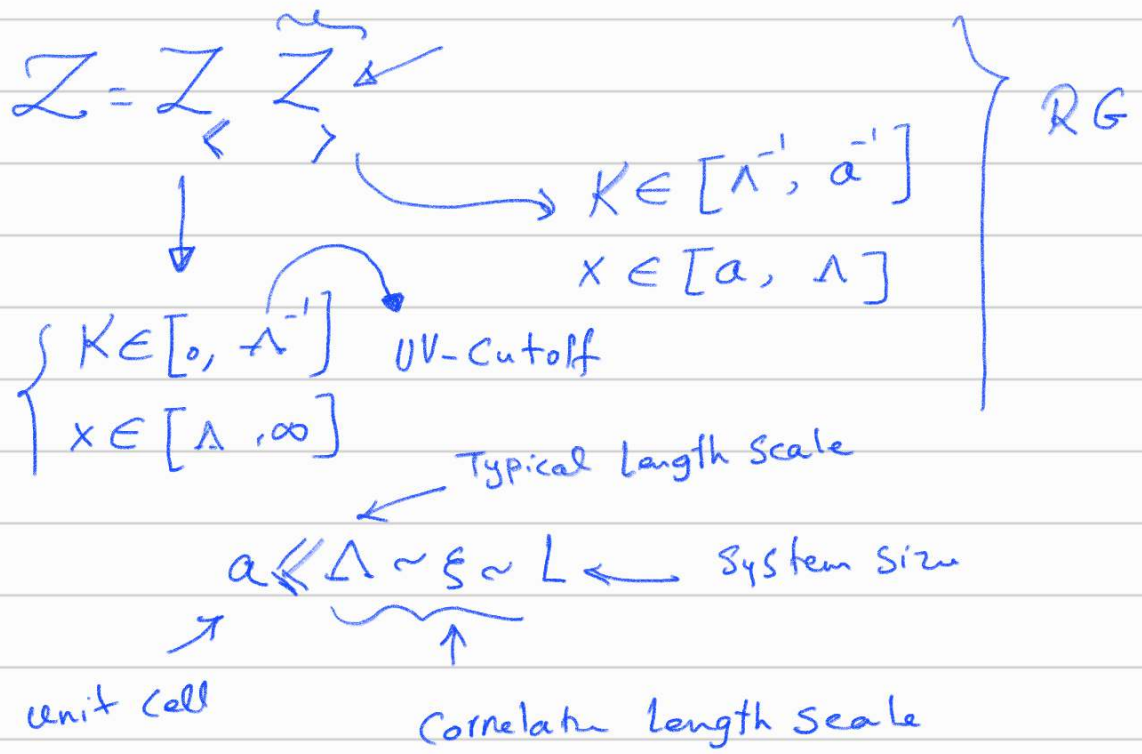 Z = Z< Z>
RG
K ∈ [Λ⁻¹, a⁻¹]
x ∈ [a, Λ]
K ∈ [0, Λ⁻¹] UV-Cutoff
x ∈ [Λ, ∞]
Typical Length Scale
a ≪ Λ ~ ξ ~ L ← System size
unit cell
Correlatn Length Scale